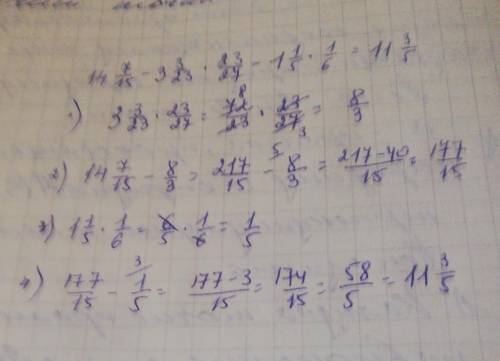 14 7/15 - 3 3/23 · 23/27 - 1 1/5 · 1/6 = 11 3/5
1) 3 3/23 · 23/27 = 72/23 8 · 23/27 3 = 8/3
2) 14 7/15 - 8/3 = 217/15 - 5 8/3 = 217-40/15 = 177/15
3) 1 1/5 · 1/6 = 6/5 · 1/6 = 1/5
4) 177/15 - 3 1/5 = 177-3/15 = 174/15 = 58/5 = 11 3/5